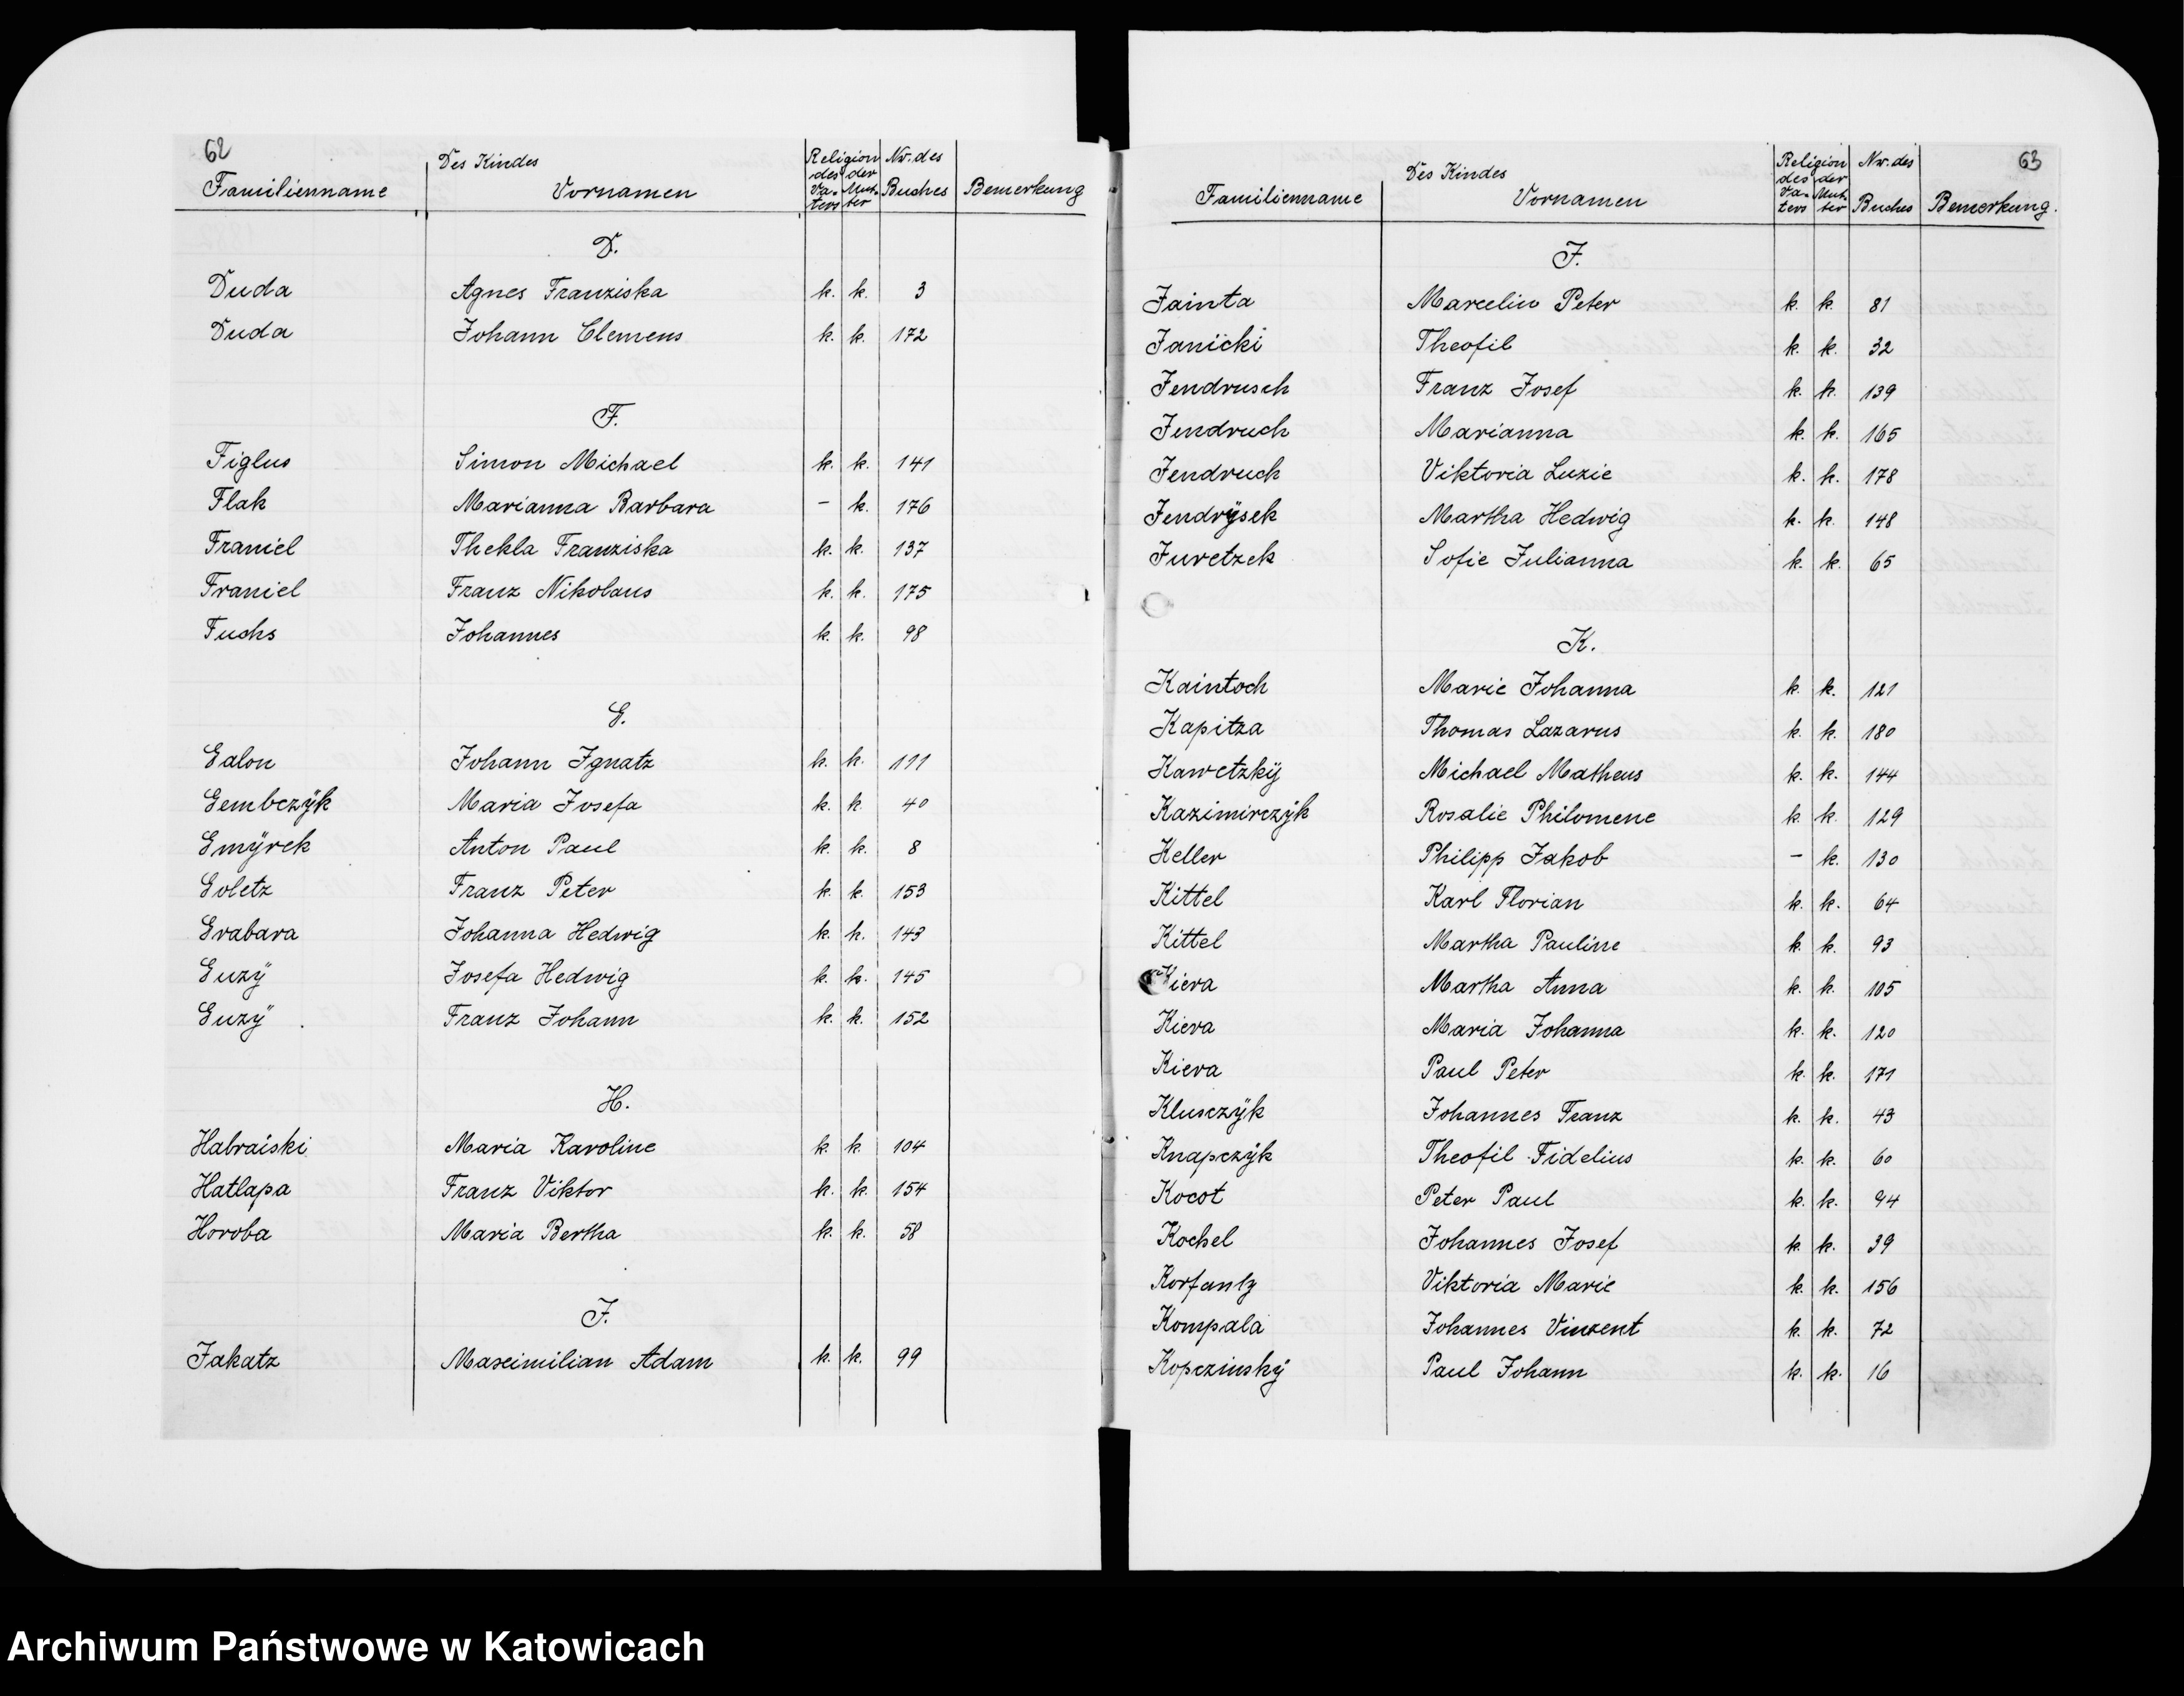 62
Des Kindes
Religion Nr. des
des der
Familienname Vornamen Va- Mut- Buches Bemerkung
ters ter
D.
Duda Agnes Franziska k. k. 3
Duda Johann Clemens k. k. 172
F.
Figlus Simon Michael k. k. 141
Flak Marianna Barbara - k. 176
Franiel Thekla Franziska k. k. 137
Franiel Franz Nikolaus k. k. 175
Fuchs Johannes k. k. 98
G.
Galon Johann Ignatz k. k. 111
Gembczÿk Maria Josefa k. k. 40
Gmÿrek Anton Paul k. k. 8
Goletz Franz Peter k. k. 153
Grabara Johanna Hedwig k. k. 143
Guzÿ Josefa Hedwig k. k. 145
Guzÿ Franz Johann k. k. 152
H.
Habraiski Maria Karoline k. k. 104
Hatlapa Franz Viktor k. k. 154
Horoba Maria Bertha k. k. 58
J.
Jakatz Maximilian Adam k. k. 99
63
Des Kindes
Religion Nr. des
des der
Familienname Vornamen Va- Mut- Buches Bemerkung.
ters ter
J.
Jainta Marcelin Peter k. k. 81
Janicki Theofil k. k. 32
Jendrusch Franz Josef k. k. 139
Jendruch Marianna k. k. 165
Jendruck Viktoria Luzie k. k. 178
Jendrÿsek Martha Hedwig k. k. 148
Juretzek Sofie Julianna k. k. 65
K.
Kaintoch Marie Johanna k. k. 121
Kapitza Thomas Lazarus k. k. 180
Kawetzkÿ Michael Matheus k. k. 144
Kazimirczÿk Rosalie Philomene k. k. 129
Keller Philipp Jakob - k. 130
Kittel Karl Florian k. k. 64
Kittel Martha Pauline k. k. 93
Kiera Martha Anna k. k. 105
Kiera Maria Johanna k. k. 120
Kiera Paul Peter k. k. 171
Klusczÿk Johannes Franz k. k. 43
Knapczÿk Theofil Fidelius k. k. 60
Kocot Peter Paul k. k. 94
Kochel Johannes Josef k. k. 39
Korfanty Viktoria Marie k. k. 156
Kompala Johannes Vinzent k. k. 72
Kopczinskÿ Paul Johann k. k. 16
Archiwum Państwowe w Katowicach